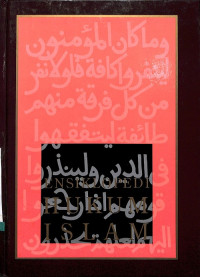 وما كان المؤمنون
لينفروا كافة فلولا نفر
من كل فرقة منهم
طائفة ليتفقهوا
في الدين ولينذروا
ENSIKLOPEDI
قومهم اذا رجعوا
HUKUM
ISLAM
اليهم لعلهم يحذرون